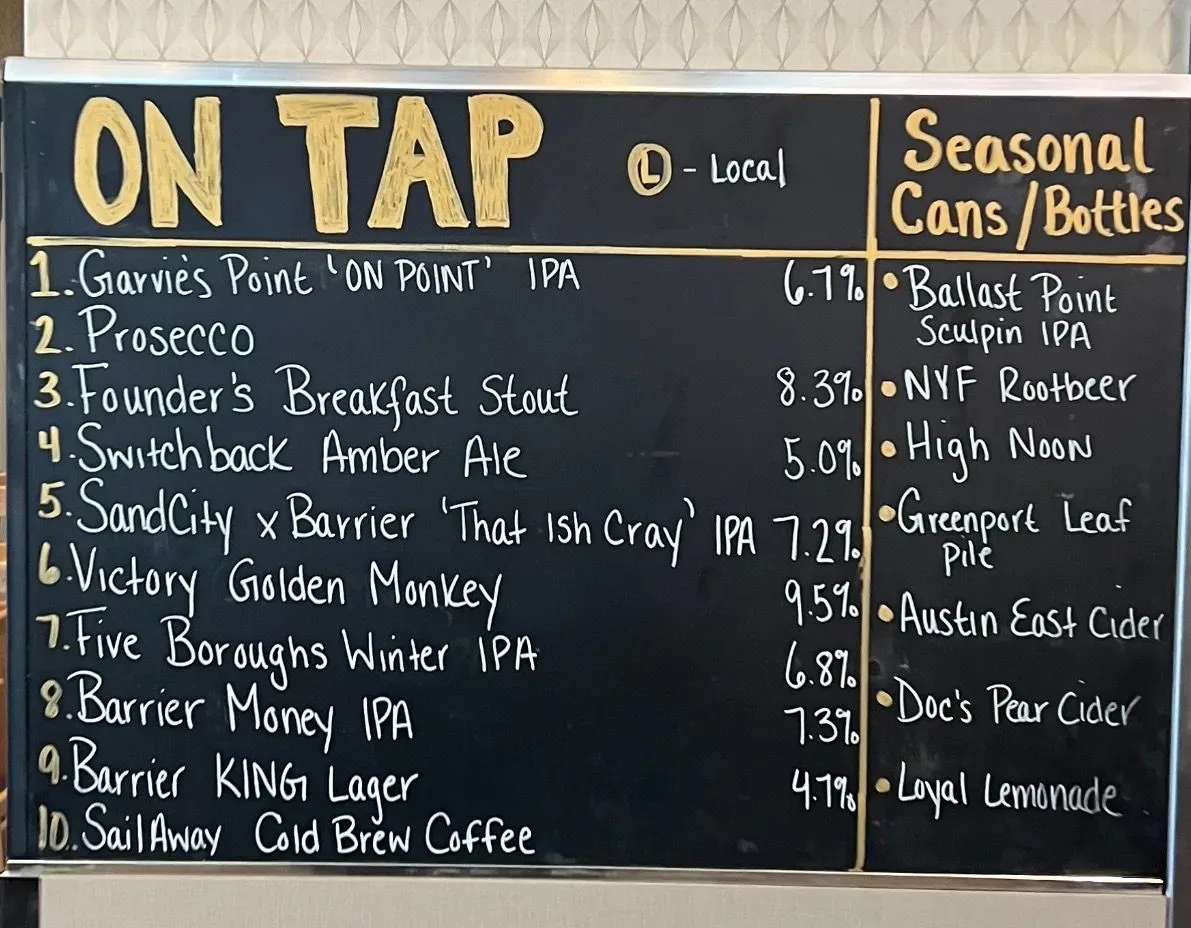 ON TAP
Ⓛ - Local
1. Garvie's Point 'ON POINT' IPA 6.7%
2. Prosecco
3. Founder's Breakfast Stout 8.3%
4. Switchback Amber Ale 5.0%
5. SandCity x Barrier 'That Ish Cray' IPA 7.2%
6. Victory Golden Monkey 9.5%
7. Five Boroughs Winter IPA 6.8%
8. Barrier Money IPA 7.3%
9. Barrier KING Lager 4.7%
10. SailAway Cold Brew Coffee
Seasonal
Cans/Bottles
• Ballast Point
Sculpin IPA
• NYF Rootbeer
• High Noon
• Greenport Leaf
Pile
• Austin East Cider
• Doc's Pear Cider
• Loyal Lemonade